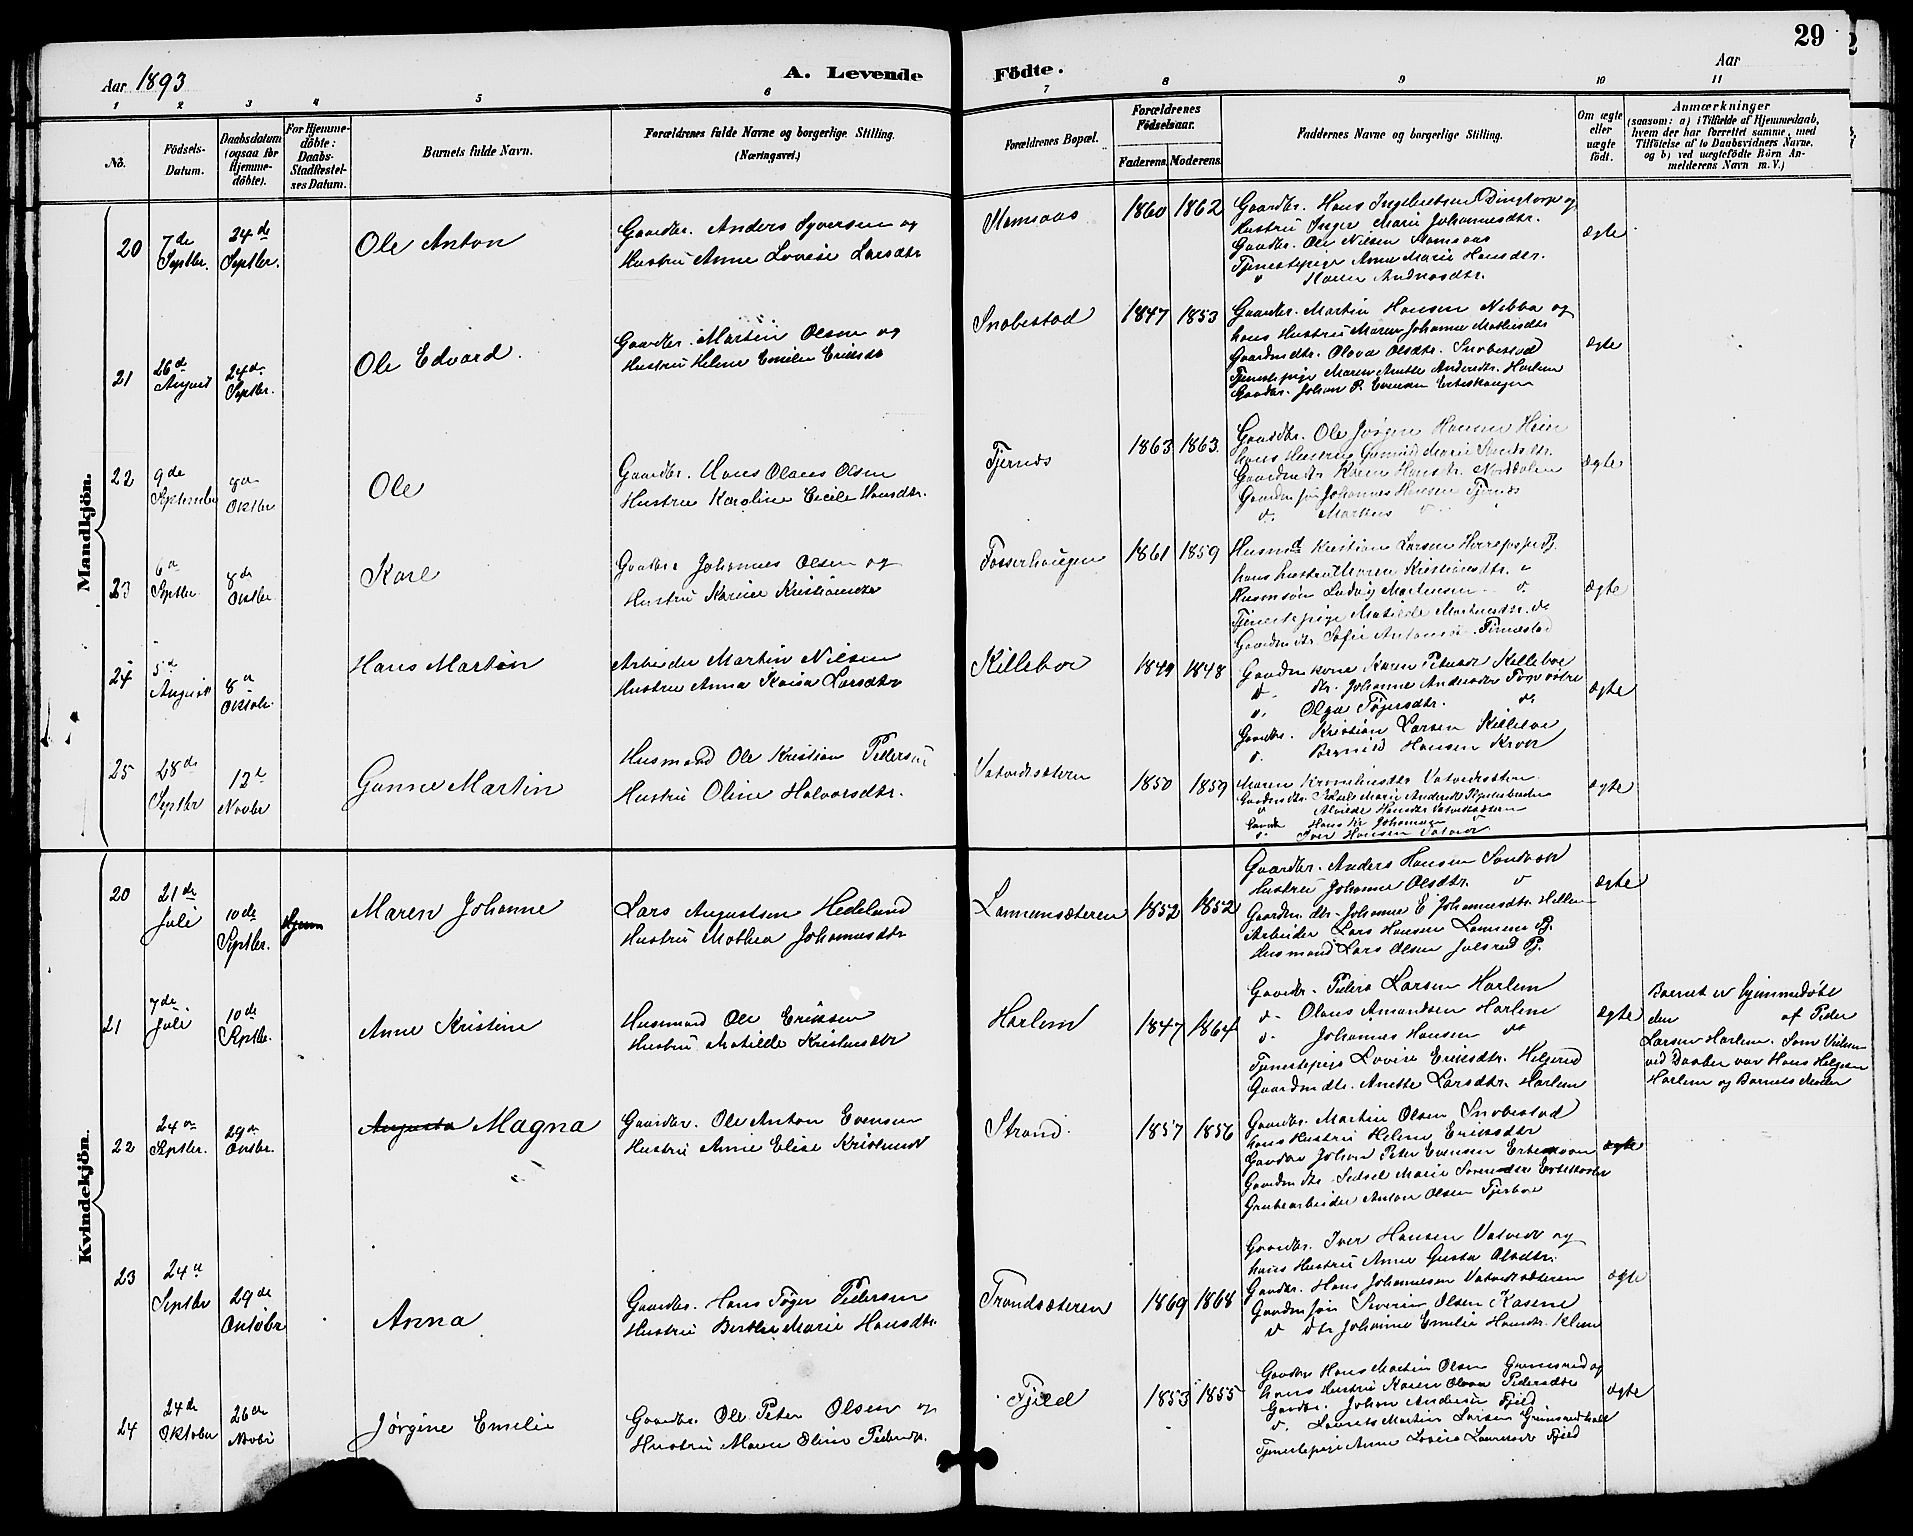 29
Aar 1893
A. Levende
Födte.
Aar
1 2 3 4 5 6 7 8 9 10 11
No.
Födsels-
Datum.
Daabsdatum
(ogsaa för
Hjemme-
döbte).
For Hjemme-
döbte:
Daabs-
Stadfæstel-
ses Datum.
Barnets fulde Navn.
Forældrenes fulde Navne og borgerlige Stilling.
(Næringsvei.)
Forældrenes Bopæl.
Forældrenes
Födselsaar.
Faderens. Moderens.
Faddernes Navne og borgerlige Stilling.
Om ægte
eller
uægte
födt.
Anmærkninger
(saasom: a) i Tilfælde af Hjemmedaab,
hvem der har forrettet samme, med
Tilföielse af to Daabsvidners Navne,
og b) ved uægtefödte Börn An-
melderens Navn m. V.)
Mandkjön.
20
7de
Septbr.
24de
Septbr.
Ole Anton
Gaardbr. Anders Syversen og
Hustru Anne Lovise Larsdtr
1860 1862
Gaardbr. Hans Ingebretsen
Hustru Inger Marie Johannesdtr.
Gaardbr. Ole Nilsen
Tjenestepige Anne Marie Hansdtr.
Andreasdtr.
ægte
21
26de
August
24de
Septbr.
Ole Edvard.
Gaardbr. Martin Olsen og
Hustru Helene Emilie Eriksdtr
Snobestad
1847 1853
Gaardbr. Martin Hansen Nebba og
hans Hustru Maren Johanne Mathisdtr
Gaardmdtr. Olava Olsdtr. Snobestad
Tjenestepige Maren Anette Andersdtr. Harlem
Gaardbr. Johan P. Evensen
ægte
22
9de
September
8de
Oktbr
Ole
Gaardbr. Hans Olaus Olsen
Hustru Karoline Cecilie Hansdtr.
Tjernes
1863 1863
Gaardbr. Ole Jörgen Hansen
hans Hustru Marie
Gaardmdtr. Karen Hansdtr.
Gaardm sön Johannes Hansen Tjernes
Markus
ægte
23
6te
Septbr.
8de
Oktbr
Karl
Gaardbr. Johannes Olsen og
Hustru Karine Kristiansdtr
Fosserhaugen
1861 1859
Husmd Kristian Larsen
hans hustru Maren Kristiansdtr.
Husmsön Ludvig Martinsen
Tjenestepige Matilde Martinsdtr. do
Gaardmdtr. Sofie
ægte
24
5te
August
8de
Oktob.
Hans Martin
Arbeider Martin Nilsen
Hustru Anna Kaisa Larsdtr
Killeboe
1849 1848
Gaardm kone Karen Killeboe
dtr. Johanne Andersdtr
Olga do
Gaardbr. Kristian Larsen Killeboe
Hansen
ægte
25
28de
Septbr
12te
Novbr
Gunne Martin
Husmand Ole Kristian Pedersen
Hustru Oline Halvorsdtr.
Vatvedsæteren
1850 1859
Maren Vatvedsæteren
Gaardmdtr. Marie Andersdtr
Hansdtr Vatvedsæteren
Gaardbr Hans Kr. Johannesen
Iver Hansen Vatved
ægte
Kvindekjön.
20
21de
Juli
10de
Septbr.
Hjem
Maren Johanne
Lars Augustsen Hedelund
Hustru Mathea Johannesdtr
1852 1852
Gaardbr. Anders Hansen
Hustru Johanne Olsdtr.
Gaardm. dtr. Johanne E. Johannesdtr.
Arbeider Lars Hansen
Husmand Lars Olsen
ægte
21
7de
Juli
10de
Septbr.
Anne Kristine
Husmand Ole Eriksen
Hustru Matilde Kristensdtr
Harlem
1847 1864
Gaardbr. Peder Larsen Harlem
Olaus Amundsen Harlem
Johannes Hansen do
Tjenestepige Lovise Eriksdtr.
Gaardmdtr. Anette Larsdtr. Harlem
ægte
Barnet er hjemmedöbt
den af Peder
Larsen Harlem. Som Vidner
ved Daaben var Hans Helgesen
Harlem og Barnets Moder
22
24de
Septbr.
29de
Oktbr.
Augusta Magna
Gaardbr. Ole Anton Evensen
Hustru Anne Elise
Strand.
1857 1856
Gaardbr. Martin Olsen Snobestad
hans Hustru Helene Eriksdtr
Gaardbr Johan Peter Evensen
Gaardmdtr. Sedsel Marie Sorensdtr
Grubearbeider Anton Olsen
ægte
23
24de
Septbr
29de
Oktobr
Anna
Gaardbr. Hans Töger Pedersen
Hustru Berthe Marie Hansdtr.
Trondsæteren
1869 1868
Gaardbr. Iver Hansen Vatved og
hans Hustru Anne Gusta Olsdtr.
Gaardbr. Hans Johannesen Vatvedsæteren
Gaardm sön Severin Olsen Kasene
dtr Johanne Emilie Hansdtr.
ægte
24
24de
Oktober
26de
Novbr
Jørgine Emilie
Gaardbr. Ole Peter Olsen og
Hustru Maren Eline Pedersdtr.
Fjeld
1853 1855
Gaardbr Hans Martin Olsen Grimsrud og
hans Hustru Karen Olava Pedersdtr
Gaardbr. Johan Andersen Fjeld
Laurits Martin Larsen
Tjenestepige Anne Lovise Fjeld
ægte